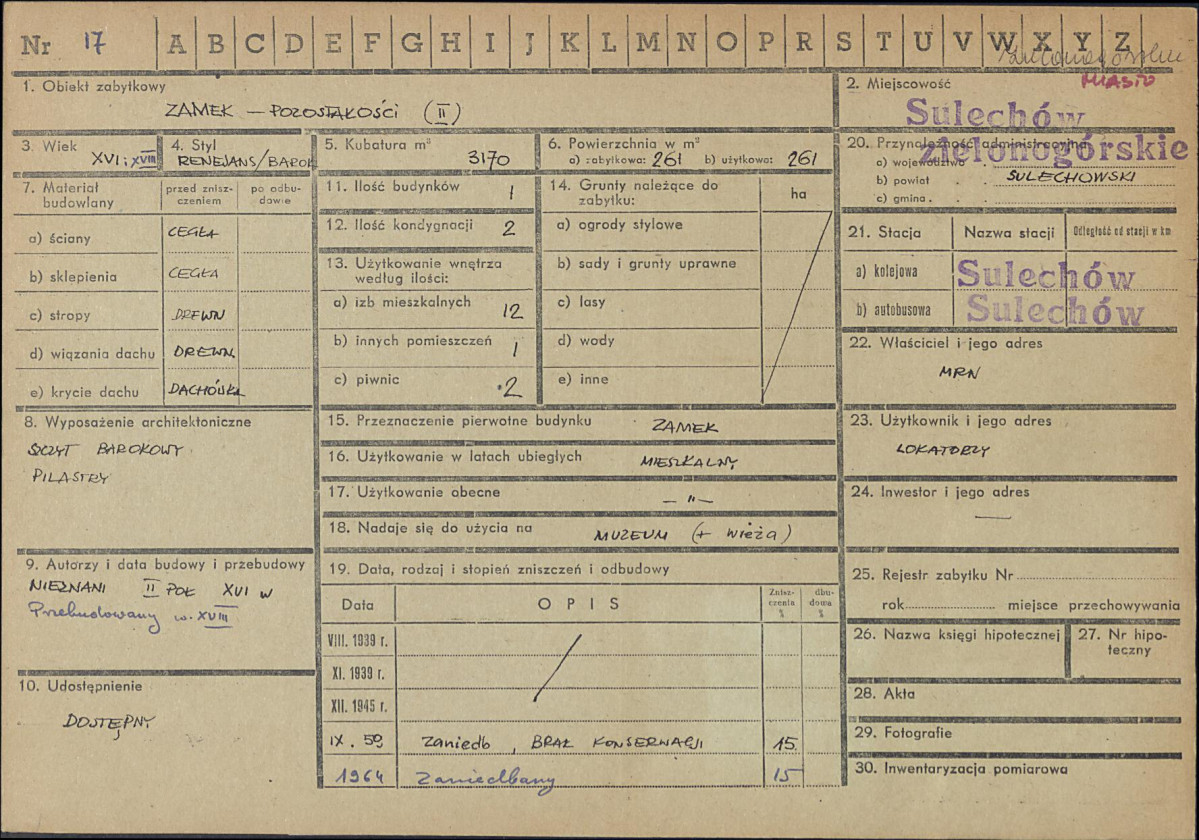 Nr 17 A B C D E F G H I J K L M N O P R S T U V W X Y Z
MIASTO
1. Obiekt zabytkowy
ZAMEK — POZOSTAŁOŚCI (II)
2. Miejscowość
Sulechów
3. Wiek
XVI i XVIII
4. Styl
RENEJANS/BAROK
5. Kubatura m³
3170
6. Powierzchnia w m²
a) zabytkowa: 261 b) użytkowa: 261
20. Przynależność administracyjna
a) województwo zielonogórskie
b) powiat . . SULECHOWSKI
c) gmina . .
7. Materiał budowlany
przed znisz-
czeniem
po odbu-
dowie
a) ściany CEGŁA
b) sklepienia CEGŁA
c) stropy DREWN
d) wiązania dachu DREWN.
e) krycie dachu DACHÓWKA
11. Ilość budynków 1
12. Ilość kondygnacji 2
13. Użytkowanie wnętrza
według ilości:
a) izb mieszkalnych 12
b) innych pomieszczeń 1
c) piwnic 2
14. Grunty należące do
zabytku:
ha
a) ogrody stylowe
b) sady i grunty uprawne
c) lasy
d) wody
e) inne
21. Stacja Nazwa stacji Odległość od stacji w km
a) kolejowa Sulechów
b) autobusowa Sulechów
22. Właściciel i jego adres
MRN
8. Wyposażenie architektoniczne
SZCZYT BAROKOWY
PILASTRY
15. Przeznaczenie pierwotne budynku ZAMEK
16. Użytkowanie w latach ubiegłych MIESZKALNY
17. Użytkowanie obecne — „ —
18. Nadaje się do użycia na MUZEUM (+ wieża)
23. Użytkownik i jego adres
LOKATORZY
24. Inwestor i jego adres
—
9. Autorzy i data budowy i przebudowy
NIEZNANI II POŁ XVI W
Przebudowany w. XVIII
10. Udostępnienie
DOSTĘPNY
19. Data, rodzaj i stopień zniszczeń i odbudowy
Data OPIS
Znisz-
czenia
%
dbu-
doma
%
VIII. 1939 r.
XI. 1939 r.
XII. 1945 r.
IX. 59 zaniedb, BRAK KONSERWACJI 15
1964 zaniedbany 15
25. Rejestr zabytku Nr
rok miejsce przechowywania
26. Nazwa księgi hipotecznej
27. Nr hipo-
teczny
28. Akta
29. Fotografie
30. Inwentaryzacja pomiarowa